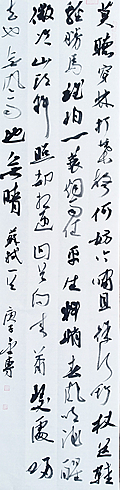 莫聽穿林打葉聲何妨吟嘯且徐行竹杖芒鞋
輕勝馬誰怕一蓑烟雨任平生料峭春風吹酒醒
微冷山頭斜照却相迎回首向來蕭瑟處歸
去也無風雨也無晴 蘇軾一首